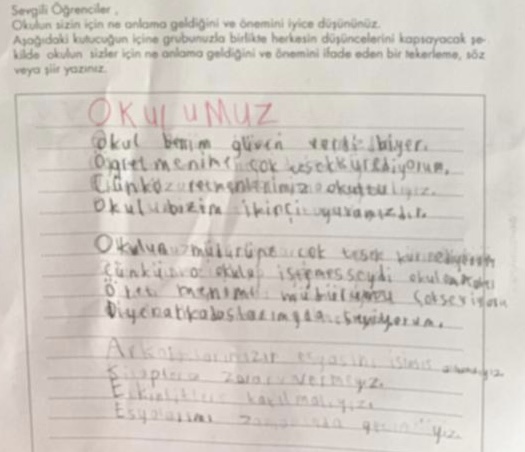 Sevgili Öğrenciler,
Okulun sizin için ne anlama geldiğini ve önemini iyice düşününüz.
Aşağıdaki kutucuğun içine grubunuzla birlikte herkesin düşüncelerini kapsayacak şe-
kilde okulun sizler için ne anlama geldiğini ve önemini ifade eden bir tekerleme, söz
veya şiir yazınız.
OKULUMUZ
Okul benim güven verdi biyer.
Öğretmenime çok teşekkürediyorum.
Okulu bizim ikinçi yuvamızdır.
Okulun müdürüne çok
Çünkü o okula
Öğretmenimi müdürümü çokseviyorum
Diyer arkadaşlarımıda seviyorum.
Arkadaşlarımızın eşyasını izinsiz almayız.
Kitaplara zarar vermeyiz.
Etkinliklere katılmalıyız.
Eşyalarımı